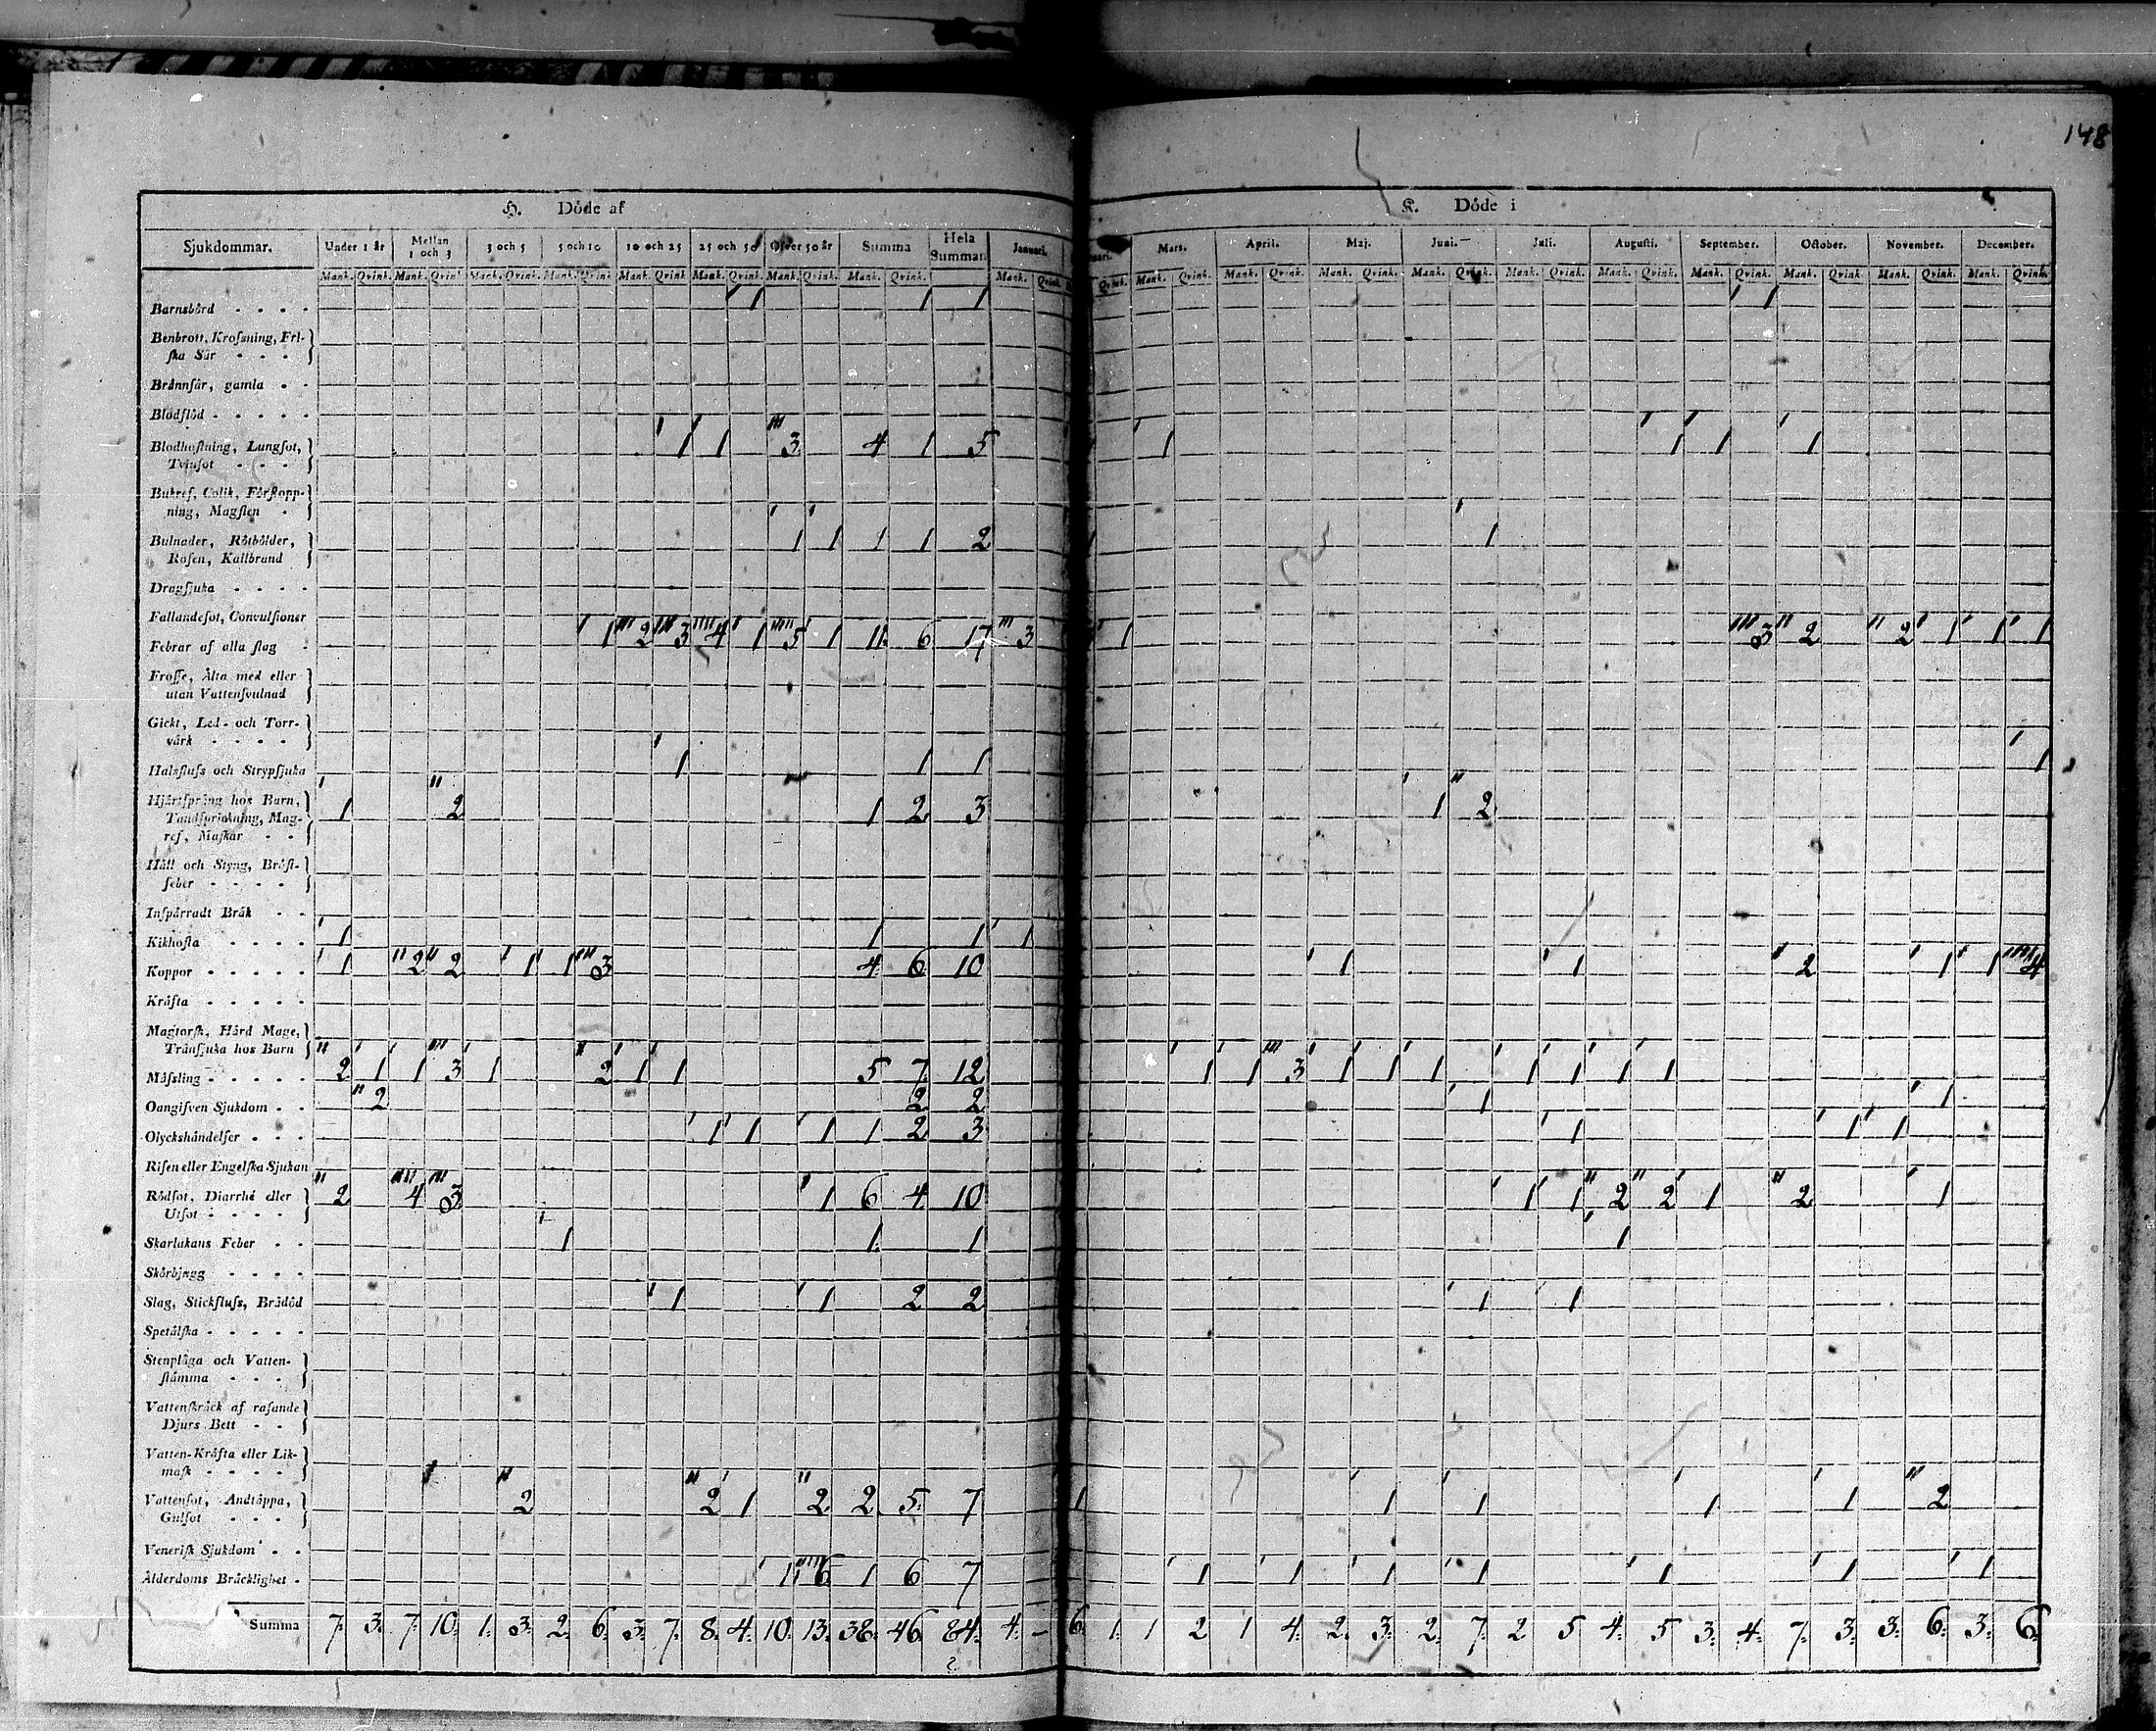 148
H. Döde af K. Döde i
Sjukdommar. Under 1 år Mellan 1 och 3 3 och 5 5 och 10 10 och 25 25 och 50 Öfver 50 år Summa Hela Summan Januari. Mars. April. Maj. Juni. Juli. Augusti. September. October. November. December.
Mank. Qvink. Mank. Qvink. Mank. Qvink. Mank. Qvink. Mank. Qvink. Mank. Qvink. Mank. Qvink. Mank. Qvink. Mank. Qvink. Qvink. Mank. Qvink. Mank. Qvink. Mank. Qvink. Mank. Qvink. Mank. Qvink. Mank. Qvink. Mank. Qvink. Mank. Qvink. Mank. Qvink. Mank. Qvink.
Barnsbörd 1 1 1 1
Benbrott, Krossning, Fri-
ska Sår
Brännsår, gamla
Blodflöd
Blodhostning, Lungsot,
Tvinsot 1 1 3 4 1 5 1 1 1 1
Bukref, Colik, Förstopp-
ning, Magsten
Bulnader, Rötbölder,
Rosen, Kallbrand 1 1 1 1 2 1
Dragsjuka
Fallandesot, Convulsioner
Febrar af alla slag 1 2 3 4 1 5 1 11 6 17 3 1 3 2 2 1 1 1
Frosse, Älta med eller
utan Vattensvulnad
Gickt, Led- och Torr-
värk
Halsfluss och Strypsjuka 1 1 1 1
Hjärtsprång hos Barn,
Tandsprickning, Mag-
ref, Maskar 1 2 1 2 3 1 2
Håll och Styng, Bröst-
feber
Inspärradt Bråk
Kikhosta 1 1 1 1
Koppor 1 2 2 1 1 3 4 6 10 1 1 2 1 1 4
Kräfta
Magtorsk, Hård Mage,
Tränsjuka hos Barn
Mässling 2 1 1 3 1 2 1 1 5 7 12 1 1 3 1 1 1 1 1 1 1
Oangifven Sjukdom 2 2 2 1 1
Olyckshändelser 1 1 1 1 2 3 1 1 1
Risen eller Engelska Sjukan
Rödsot, Diarrhé eller
Utsot 2 4 3 1 6 4 10 1 1 2 2 1 2 1
Skarlakans Feber 1 1 1 1
Skörbjugg
Slag, Stickfluss, Brådöd 1 1 2 2 1 1
Spetälska
Stenplåga och Vatten-
stämma
Vattenskräck af rasande
Djurs Bett
Vatten-Kräfta eller Lik-
mask
Vattensot, Andtäppa,
Gulsot 2 2 1 2 2 5 7 1 1 1 1 1 2
Venerisk Sjukdom
Ålderdoms Bräcklighet 1 6 1 6 7 1 1 1 1 1 1 1
Summa 7. 3. 7. 10. 1. 3. 2. 6. 3. 7. 8. 4. 10. 13. 38. 46. 84. 4. – 6. 1. 1 2 1 4. 2. 3. 2. 7. 2 5 4. 5 3. 4. 7. 3. 3. 6. 3. 6.